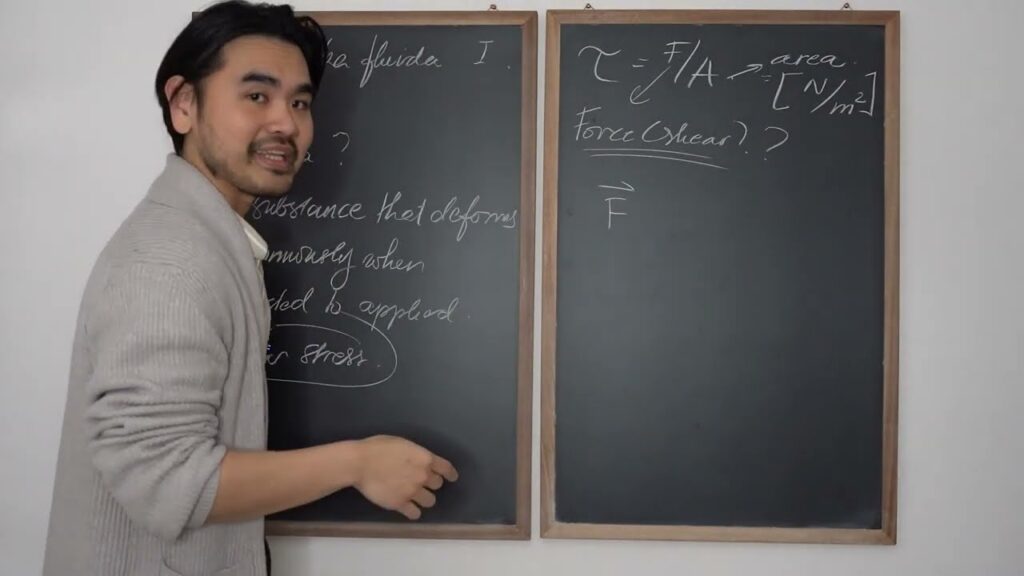 fluida I.
?
substance that deforms
nuously when
ded to applied.
stress.
τ = F/A → area.
= [N/m²]
Force (shear) ?
F⃗